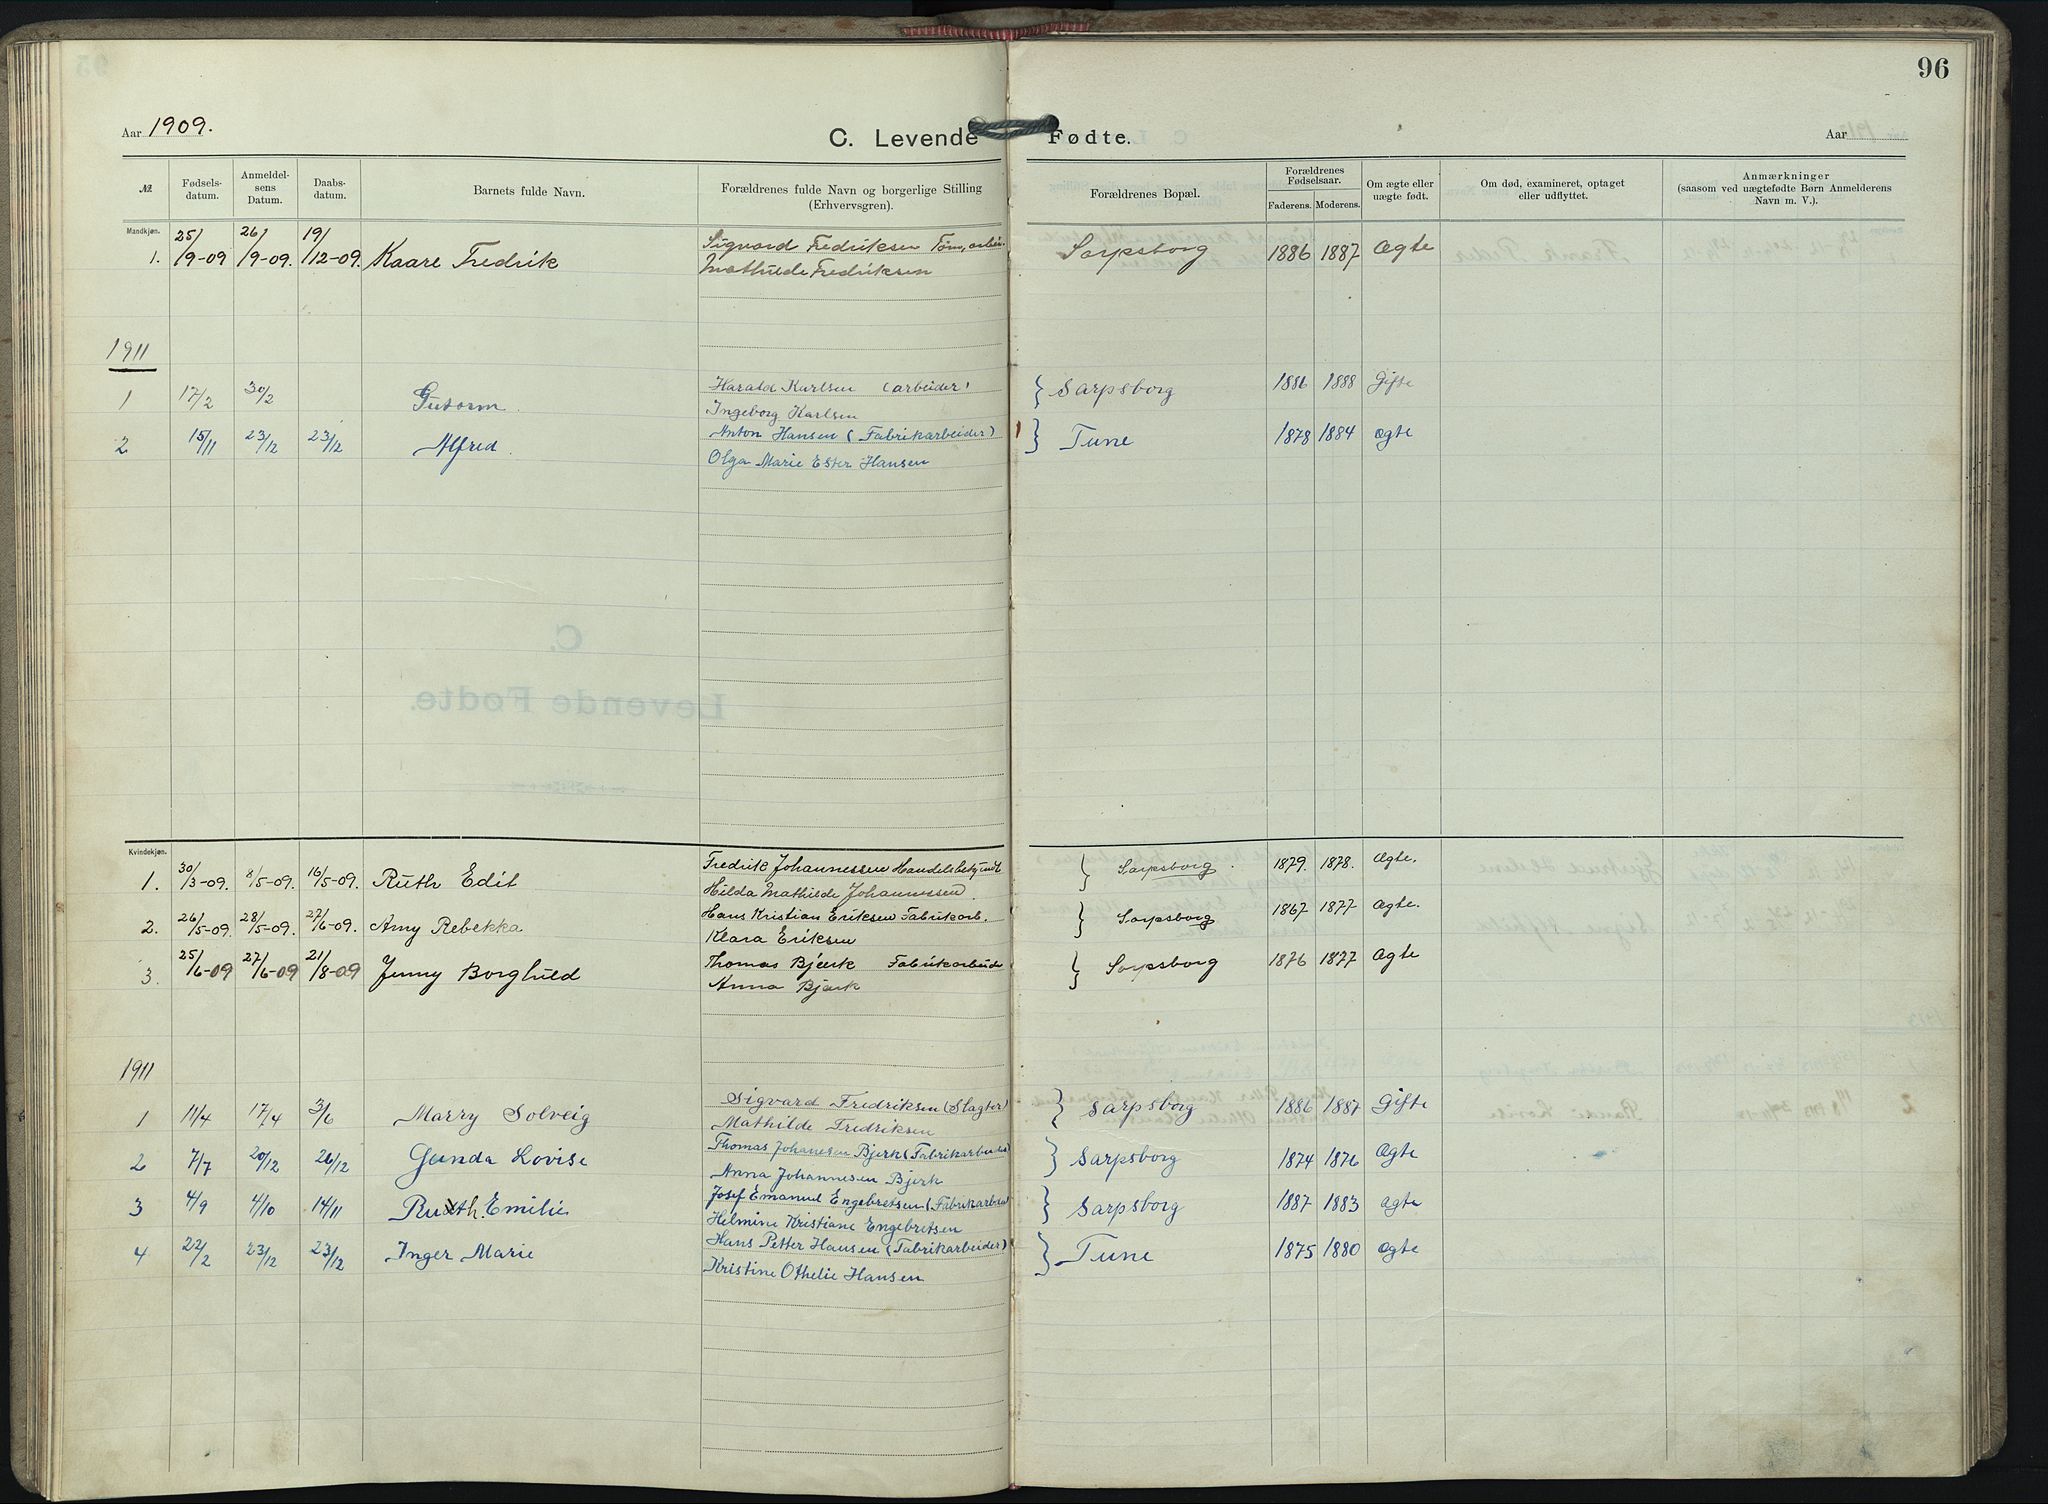 96
Aar 1909.
C. Levende Fødte.
Aar
№
Fødsels-datum.
Anmeldel-sens Datum.
Daabs-datum.
Barnets fulde Navn.
Forældrenes fulde Navn og borgerlige Stilling (Erhvervsgren).
Forældrenes Bopæl.
Forældrenes Fødselsaar.
Faderens. Moderens.
Om ægte eller uægte født.
Om død, examineret, optaget eller udflyttet.
Anmærkninger (saasom ved uægtefødte Børn Anmelderens Navn m. V.).
Mandkjøn.
1. 25/9-09 26/9-09. 19/12-09. Kaare Fredrik Sigvard Fredriksen Tøm. arbei. Sarpsborg 1886 1887 Ægte
Mathilde Fredriksen
1911
1 17/2 30/2 Gutorm. Harald Karlsen (arbeider) } Sarpsborg 1886 1888 Gifte
Ingeborg Karlsen
2 15/11 23/12 23/12 Alfred. Anton Hansen (Fabrikarbeider) } Tune 1878 1884 Ægte
Olga Marie Ester Hansen
C.
Levende Fødte.
Kvindekjøn.
1. 30/3-09. 8/5-09. 16/5-09. Ruth Edit Fredrik Johannessen } Sarpsborg. 1879. 1878. Ægte.
Hilda Mathilde Johannessen.
2. 26/5-09. 28/5-09. 27/6-09. Amy Rebekka Hans Kristian Eriksen Fabrikarb. } Sarpsborg 1867 1877 Ægte.
Klara Eriksen
3. 25/6-09 27/6-09 21/8-09 Jenny Borghild Thomas Bjærk Fabrikarbeider } Sarpsborg 1876 1877 Ægte
Anna Bjærk
1911
1 11/4 17/4 3/6 Marry Solveig Sigvard Fredriksen (Slagter) } Sarpsborg 1886 1887 Gifte
Mathilde Fredriksen
2 7/7 20/12 26/12 Gunda Lovise Thomas Johanesen Bjerk (Fabrikarbeider) } Sarpsborg 1874 1876 Ægte
Anna Johannesen Bjerk
3 4/9 4/10 14/11 Ruth. Emilie Josef Emanuel Engebretsen (Fabrikarbeid) } Sarpsborg 1887 1883 Ægte
Helmine Kristiane Engebretsen
4 22/2 23/12 23/12 Inger Marie Hans Petter Hansen (Fabrikarbeider) } Tune 1875 1880 Ægte
Kristine Othelie Hansen